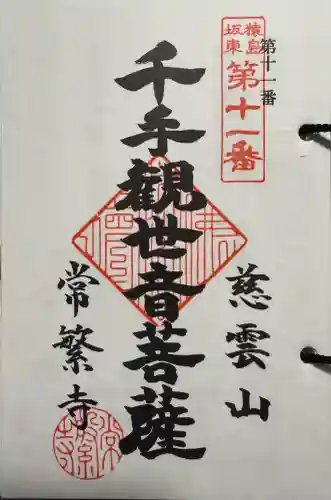 第十一番
猿島
坂東
第十一番
慈雲山
千手観世音菩薩
常繁寺